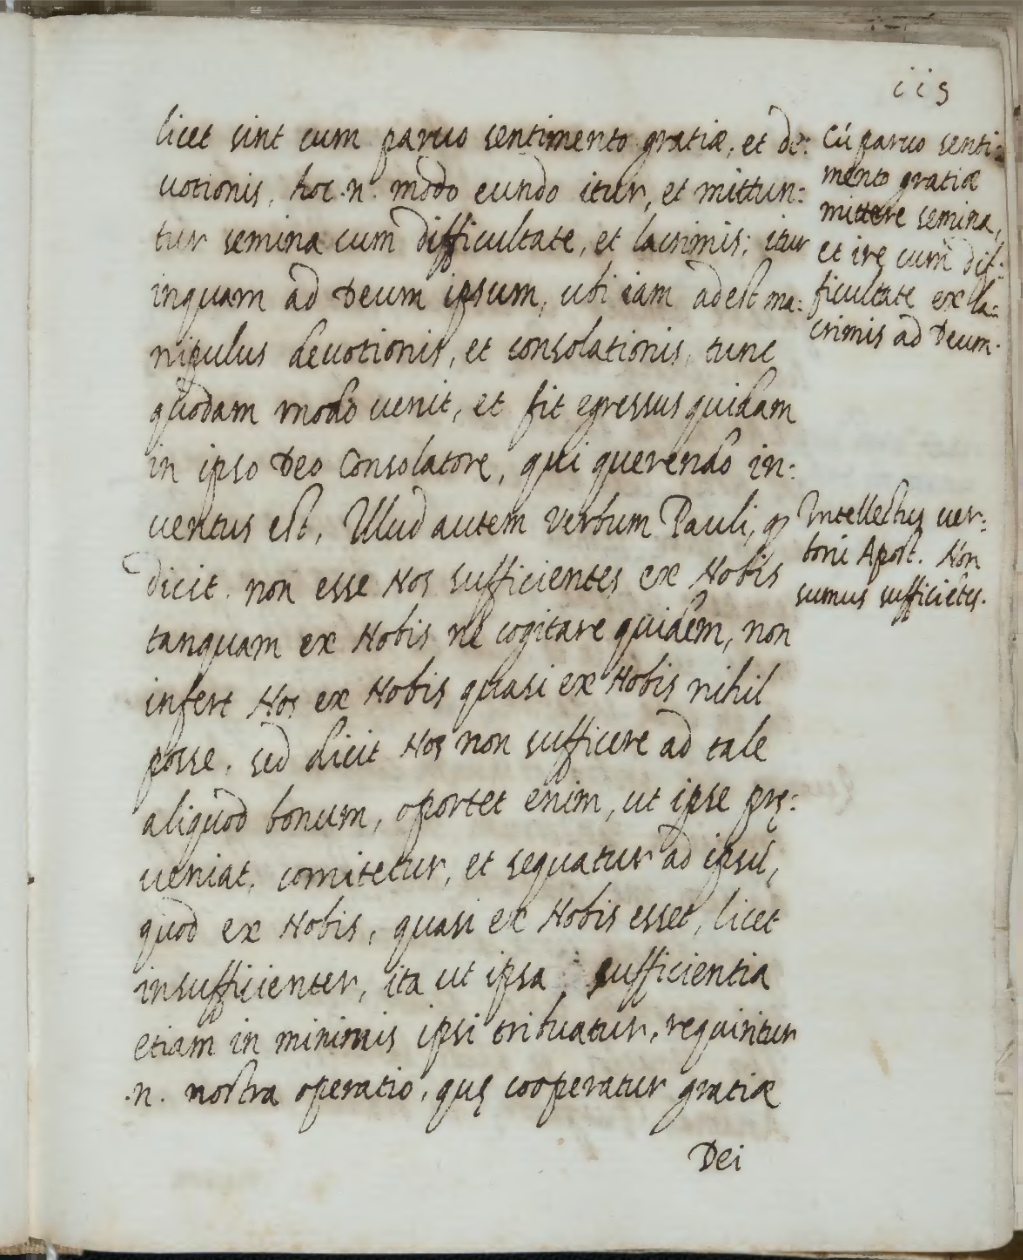 115
licet sint cum paruo sentimento gratiæ, et de:
uotionis, hoc .n. modo eundo itur, et mittun:
tur semina cum difficultate, et lacrimis; itur
inquam ad Deum ipsum, ubi iam adest ma:
nipulus deuotionis, et consolationis, tunc
quodam modo uenit, et fit egressus quidam
in ipso Deo Consolatore, qui querendo in:
uentus est, Illud autem verbum Pauli, q
dicit. non esse Nos sufficientes ex Nobis
tanquam ex Nobis nè cogitare quidem, non
infert Nos ex Nobis quasi ex Nobis nihil
posse. sed dicit Nos non sufficere ad tale
aliquod bonum, oportet enim, ut ipse prę:
ueniat, comitetur, et sequatur ad ipsũ,
quod ex Nobis, quasi ex Nobis esset, licet
insufficienter, ita ut ipsa sufficientia
etiam in minimis ipsi tribuatur, requiritur
.n. nostra operatio, quę cooperatur gratiæ
Dei
Cũ paruo senti:
mento gratiæ
mittere semina,
et ire cum dif:
ficultate ex la:
crimis ad Deum.
Intellectus uer:
borũ Apost. Non
sumus sufficiẽtes.